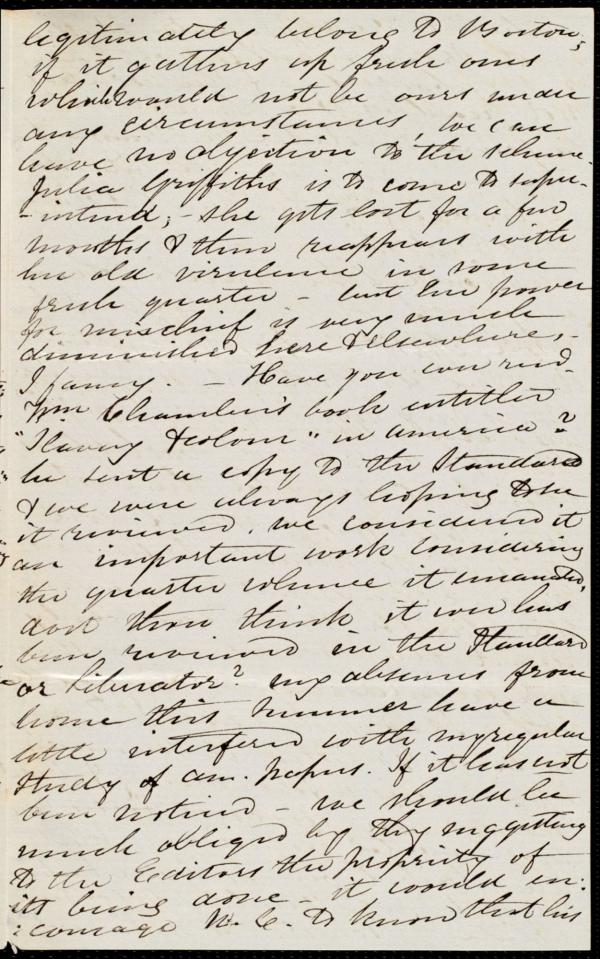 legitimately belong to Boston;
if it gathers up fresh ones
which would not be ours under
any circumstances, we can
have no objection to the scheme.
Julia Griffiths is to come to super-
-intend; - she gets lost for a few
months & then reappears with
her old virulence in some
fresh quarter - but her power
for mischief is very much
diminished here & elsewhere, -
I fancy. - Have you ever read
Wm Chambers's book entitled
"Slavery & colour" in America?
he sent a copy to the Standard
& we were always hoping to see
it reviewed. we considered it
an important work considering
the quarter whence it emanated,
dost thou think it ever has
been reviewed in the Standard
or Liberator? my absences from
home this summer have a
little interfered with my regular
study of am. papers. If it has not
been noticed - we should be
much obliged by thy suggesting
to the Editors the propriety of
its being done - it would en:
:courage W. C. to know that his